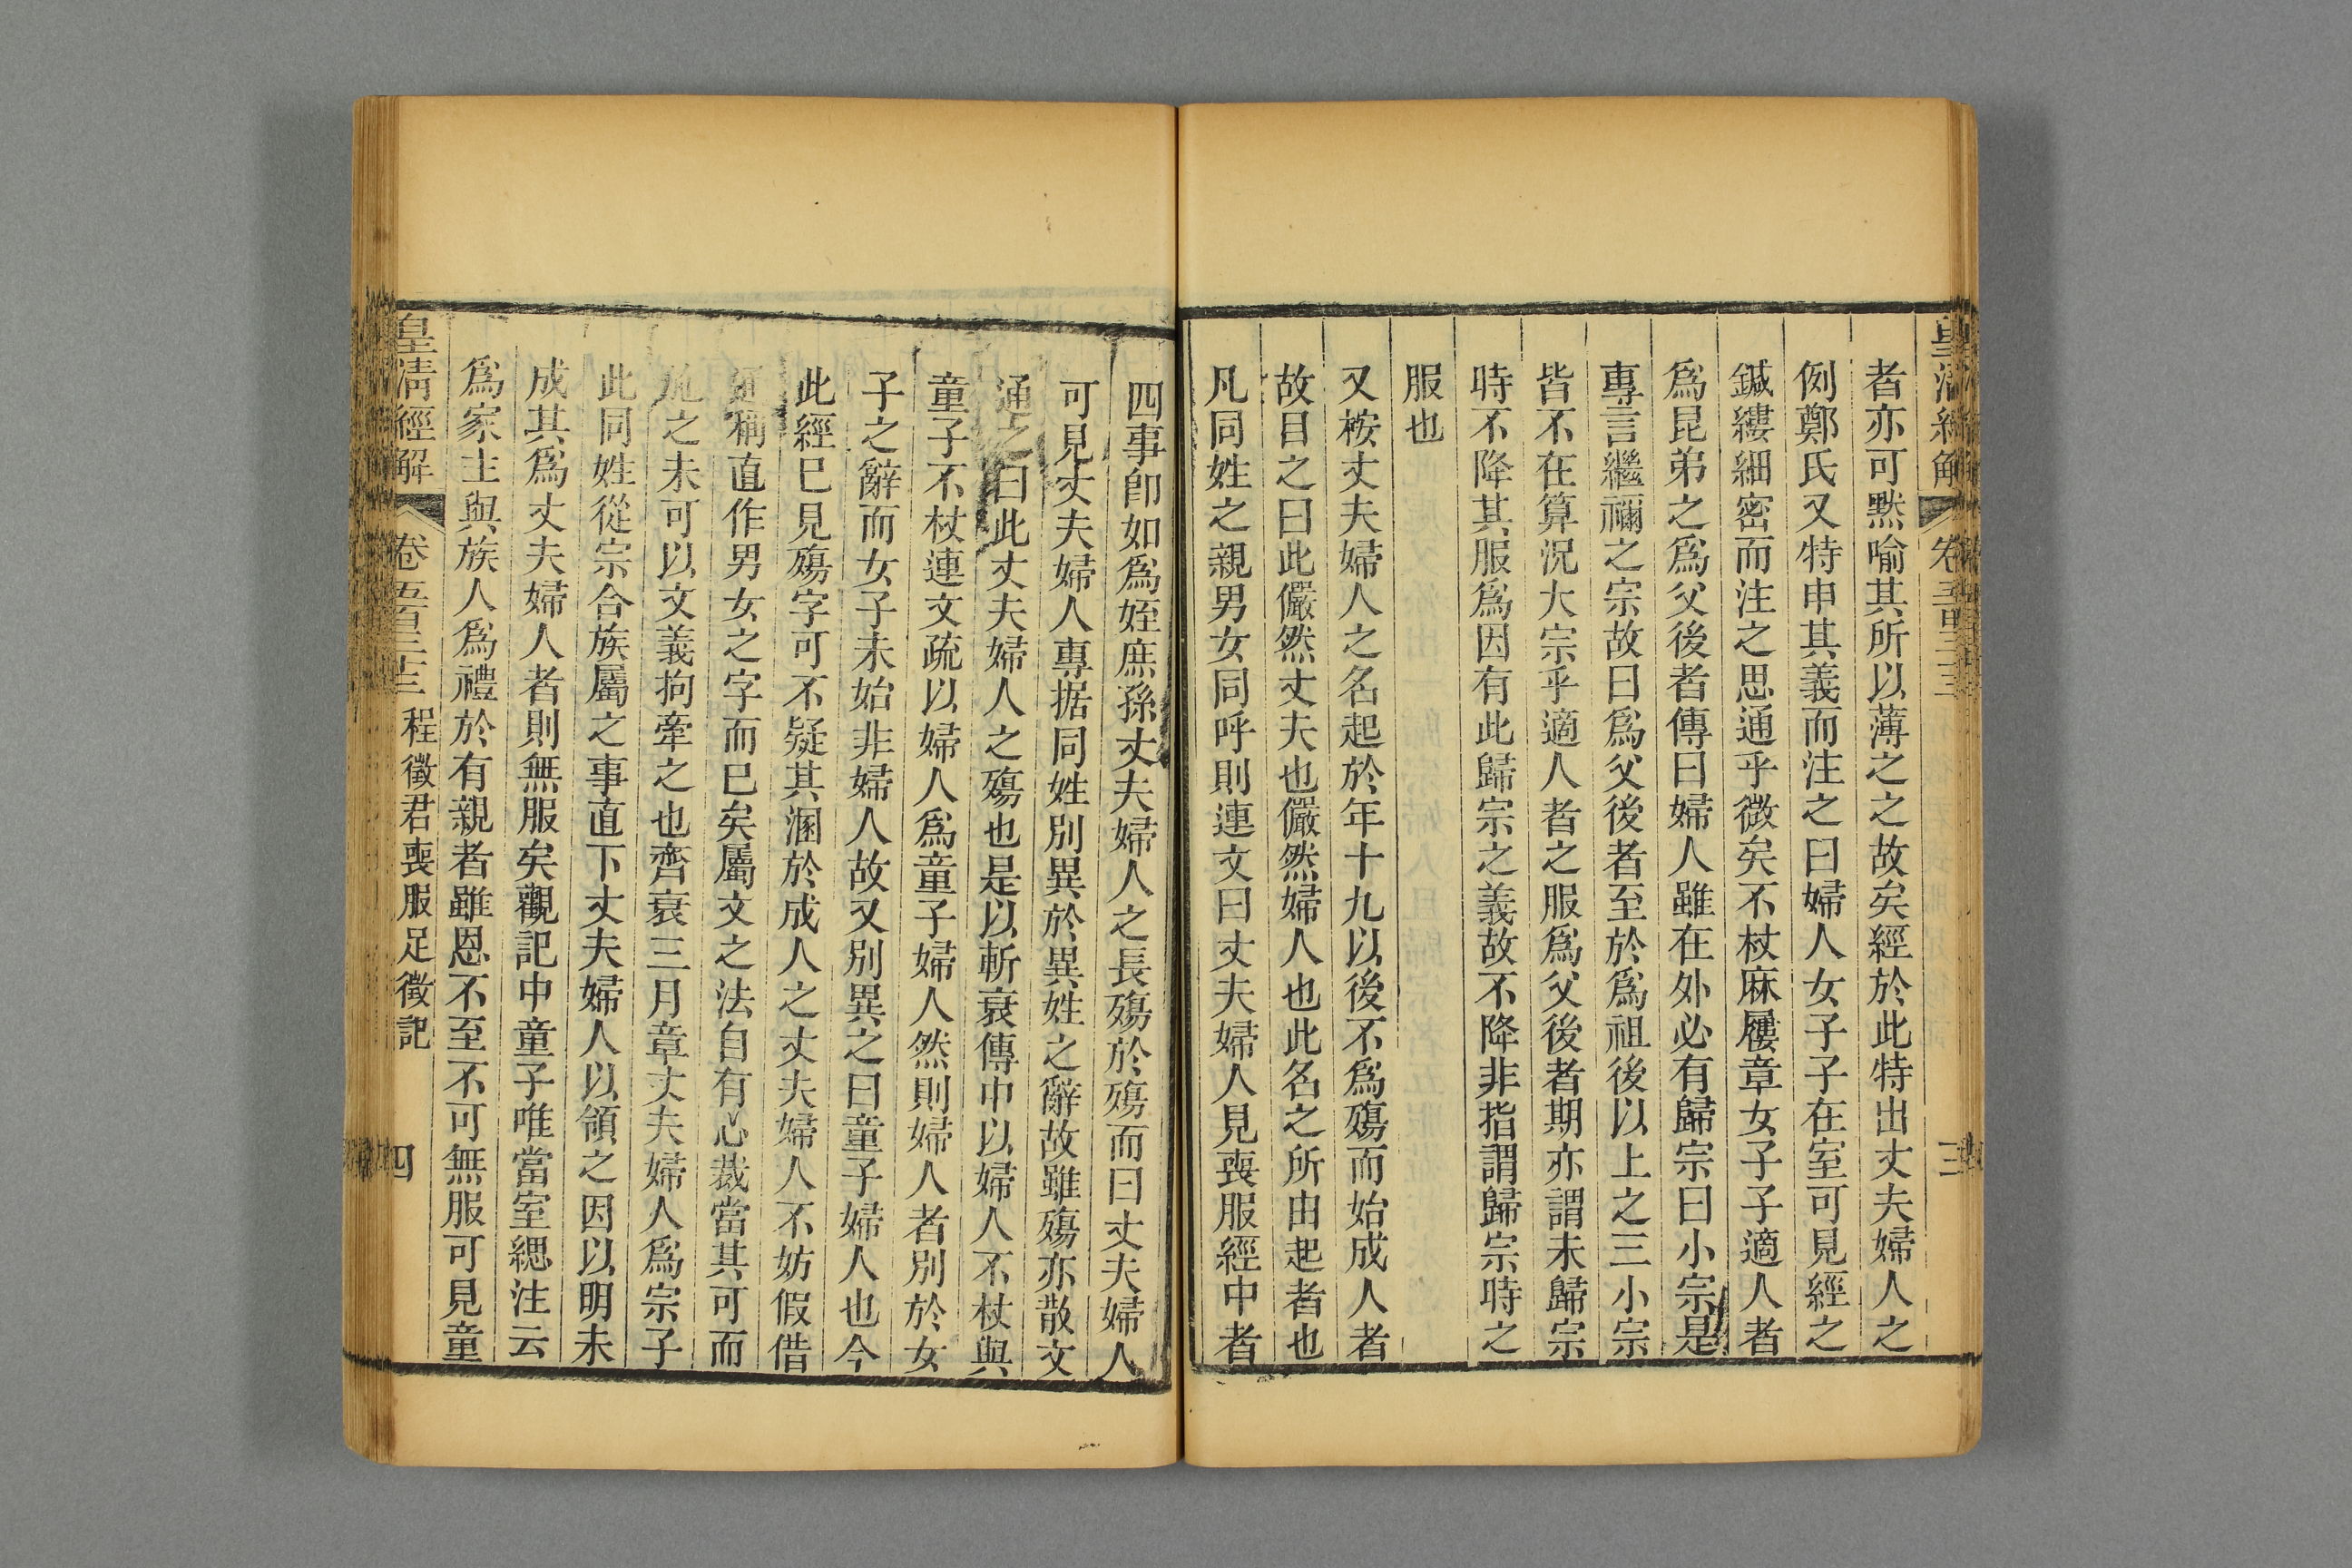 者亦可默喻其所以薄之之故矣經於此特出丈夫婦人之
例鄭氏又特申其義而注之曰婦人女子子在室可見經之
鍼縷細密而注之思通乎微矣不杖麻屨章女子子適人者
爲昆弟之爲父後者傳曰婦人雖在外必有歸宗曰小宗是
專言繼禰之宗故曰爲父後者至於爲祖後以上之三小宗
皆不在算況大宗乎適人者之服爲父後者期亦謂未歸宗
時不降其服爲因有此歸宗之義故不降非指謂歸宗時之
服也
又桉丈夫婦人之名起於年十九以後不爲殤而始成人者
故目之曰此儼然丈夫也儼然婦人也此名之所由起者也
凡同姓之親男女同呼則連文曰丈夫婦人見喪服經中者
四事卽如爲姪庶孫丈夫婦人之長殤於殤而曰丈夫婦人
可見丈夫婦人專据同姓別異於異姓之辭故雖殤亦散文
通之曰此丈夫婦人之殤也是以斬衰傳中以婦人不杖與
童子不杖連文疏以婦人爲童子婦人然則婦人者別於女
子之辭而女子未始非婦人故又別異之曰童子婦人也今
此經已見殤字可不疑其溷於成人之丈夫婦人不妨假借
通稱直作男女之字而已矣屬文之法自有心裁當其可而
施之未可以文義拘牽之也齊衰三月章丈夫婦人爲宗子
此同姓從宗合族屬之事直下丈夫婦人以領之因以明未
成其爲丈夫婦人者則無服矣觀記中童子唯當室緦注云
爲家主與族人爲禮於有親者雖恩不至不可無服可見童
皇清經解 卷五百三十三 程徵君喪服足徵記 四